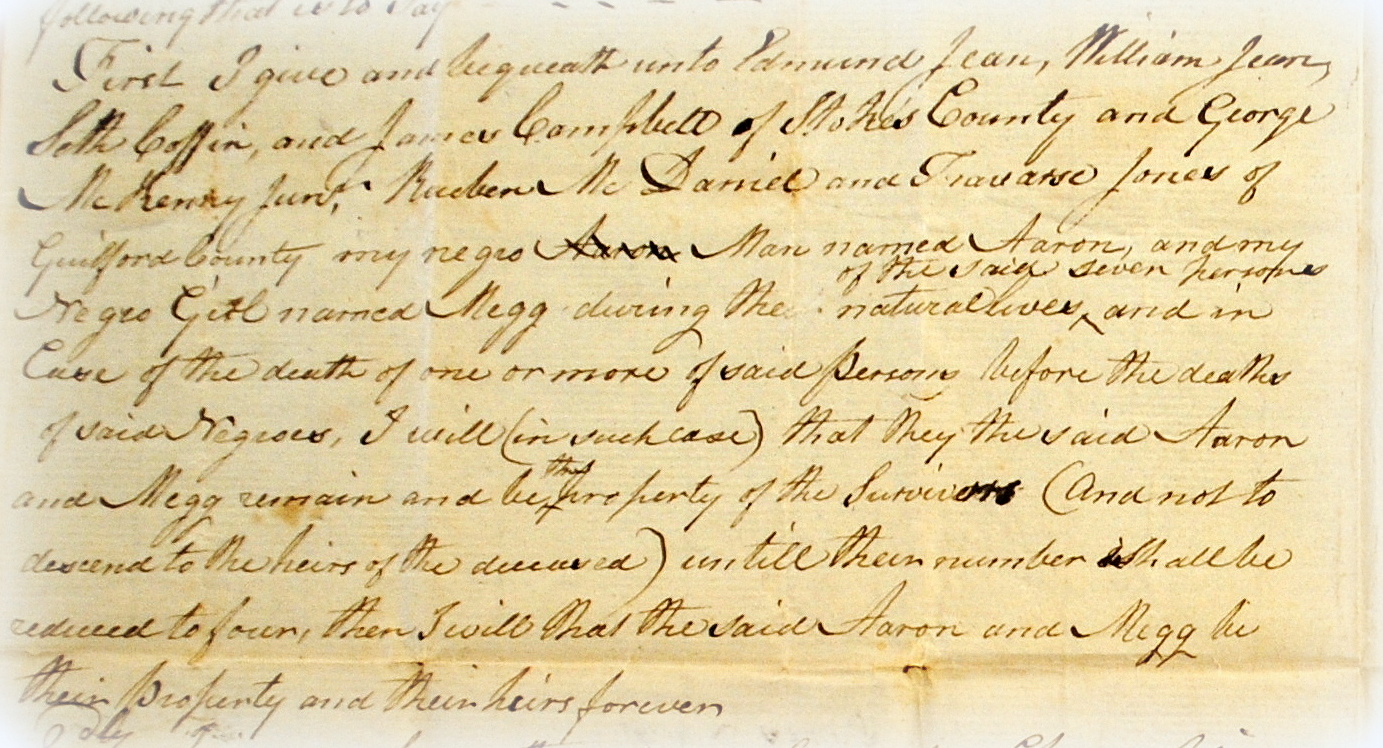 following that is to say
First I give and bequeath unto Edmund Jean, William Jean,
Seth Coffin, and James Campbell of Stokes County and George
McKenny Junr, Rueben McDaniel and Travarse Jones of
Guilford County my negro Aaron Man named Aaron, and my
of the said seven persons
Negro Girl named Megg during the natural lives, and in
Case of the death of one or more of said persons before the deaths
of said Negroes, I will (in such case) that they the said Aaron
the
and Megg remain and be property of the Survivors (and not to
descend to the heirs of the deceased) untill their number shall be
reduced to four, then I will that the said Aaron and Megg be
their property and their heirs forever